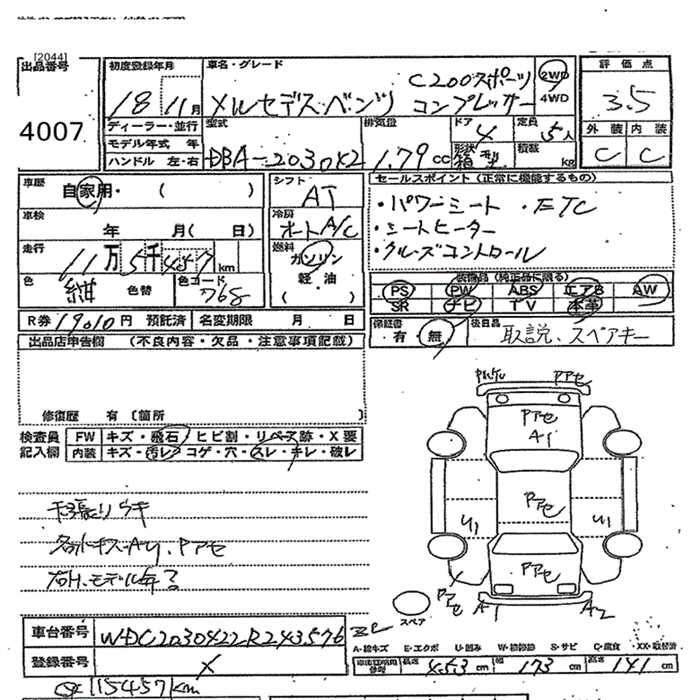 [2044]
出品番号
4007
初度登録年月
18 11月
車名・グレード
メルセデス・ベンツ
C200スポーツ
コンプレッサー
2WD
4WD
評価点
3.5
外装 内装
C C
ディーラー・並行
モデル年式 年
ハンドル 左・右
型式
DBA-203042
排気量
1.79 cc
ドア
4
形状
箱型
定員
5人
積載
kg
車歴
自家用・( )
シフト
AT
車検
年 月( 日)
冷房
オートA/C
走行
11万5千457km
燃料
ガソリン
軽・油
( )
色
紺
色替
色コード
765
R券 19010円 預託済
名変期限 月 日
セールスポイント(正常に機能するもの)
・パワーシート ・ETC
・シートヒーター
・クルーズコントロール
装備品(純正品に限る)
PS PW ABS エアB AW
SR ナビ TV 本革
保証書
有・無
後日品
取説、スペアキー
出品店申告欄 (不良内容・欠品・注意事項記載)
修復歴 有(箇所
検査員
記入欄
FW キズ・飛石・ヒビ割・リペアー跡・X要
内装 キズ・汚レ・コゲ・穴・スレ・キレ・破レ
天張りウキ
各所キズAU、Pアセ
右H、モデル年?
Pアセ
Pアセ
A1
Pアセ
U1
U1
Pアセ
Pアセ
A1
A2
スペア
車台番号
WDC2030422R243576
登録番号
X
115457km
A-線キズ E-エクボ U-凹み S-サビ C-腐食 XX-取替済
長さ 453 cm 幅 173 cm 高さ 141 cm